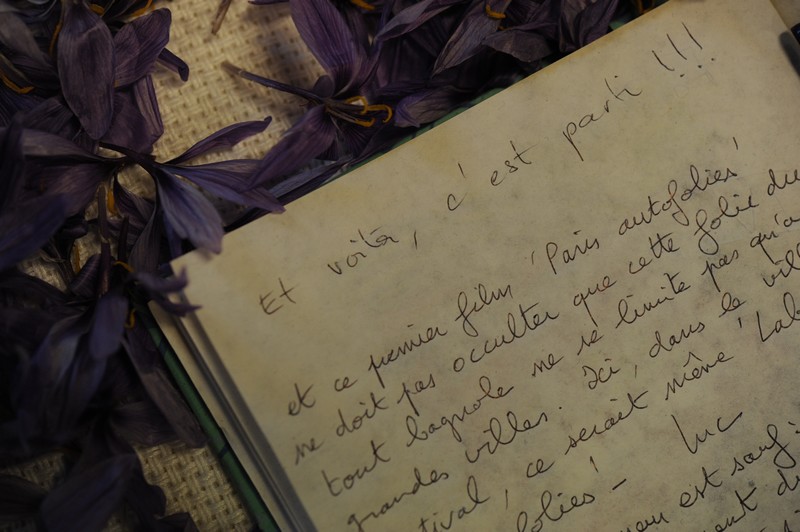 Et voilà, c'est parti !!!
et ce premier film 'Paris autofolies'
ne doit pas occulter que cette folie du
tout bagnole ne se limite pas qu'a
grandes villes. Ici, dans le vill
tival, ce serait même 'Lab
folies' - Luc
est sauf